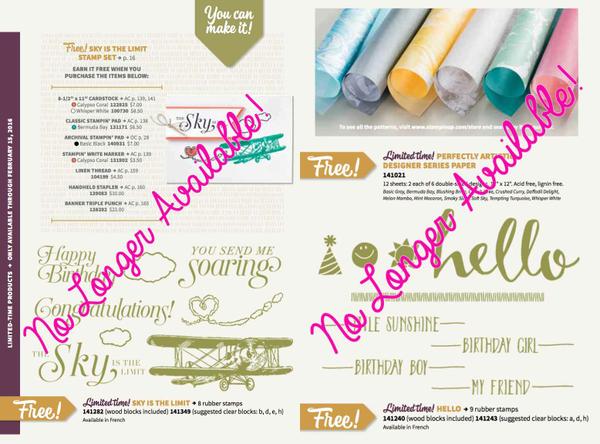 You can
make it!
Free! SKY IS THE LIMIT
STAMP SET → p. 16
EARN IT FREE WHEN YOU
PURCHASE THE ITEMS BELOW:
8-1/2" x 11" CARDSTOCK → AC p. 139, 141
Calypso Coral 122925 $7.00
Whisper White 100730 $8.50
CLASSIC STAMPIN' PAD → AC p. 138
Bermuda Bay 131171 $6.50
ARCHIVAL STAMPIN' PAD → OC p. 28
Basic Black 140931 $7.00
STAMPIN' WRITE MARKER → AC p. 139
Calypso Coral $3.50
LINEN THREAD → AC p. 159
104199 $4.50
HANDHELD STAPLER → AC p. 160
139083 $10.00
BANNER TRIPLE PUNCH → AC p. 165
$23.00
Sky
LIMITED-TIME PRODUCTS • ONLY AVAILABLE THROUGH FEBRUARY 15, 2016
Happy
Birthday
YOU SEND ME
soaring
Congratulations!
THE Sky IS THE
LIMIT
No Longer Available!
Free!
Limited time! SKY IS THE LIMIT → 8 rubber stamps
141282 (wood blocks included) 141349 (suggested clear blocks: b, d, e, h)
Available in French
To see all the patterns, visit www.stampinup.com/store and
Free!
Limited time! PERFECTLY ARTISTIC
DESIGNER SERIES PAPER
141021
12 sheets: 2 each of 6 double-sided designs. 12" x 12". Acid free, lignin free.
Basic Gray, Bermuda Bay, Blackberry Bliss, Crushed Curry, Daffodil Delight,
Melon Mambo, Mint Macaron, Smoky Slate, Soft Sky, Tempting Turquoise, Whisper White
hello
LE SUNSHINE
BIRTHDAY GIRL
BIRTHDAY BOY
MY FRIEND
No Longer Available!
Free!
Limited time! HELLO → 9 rubber stamps
141240 (wood blocks included) 141243 (suggested clear blocks: a, b, d, h)
Available in French